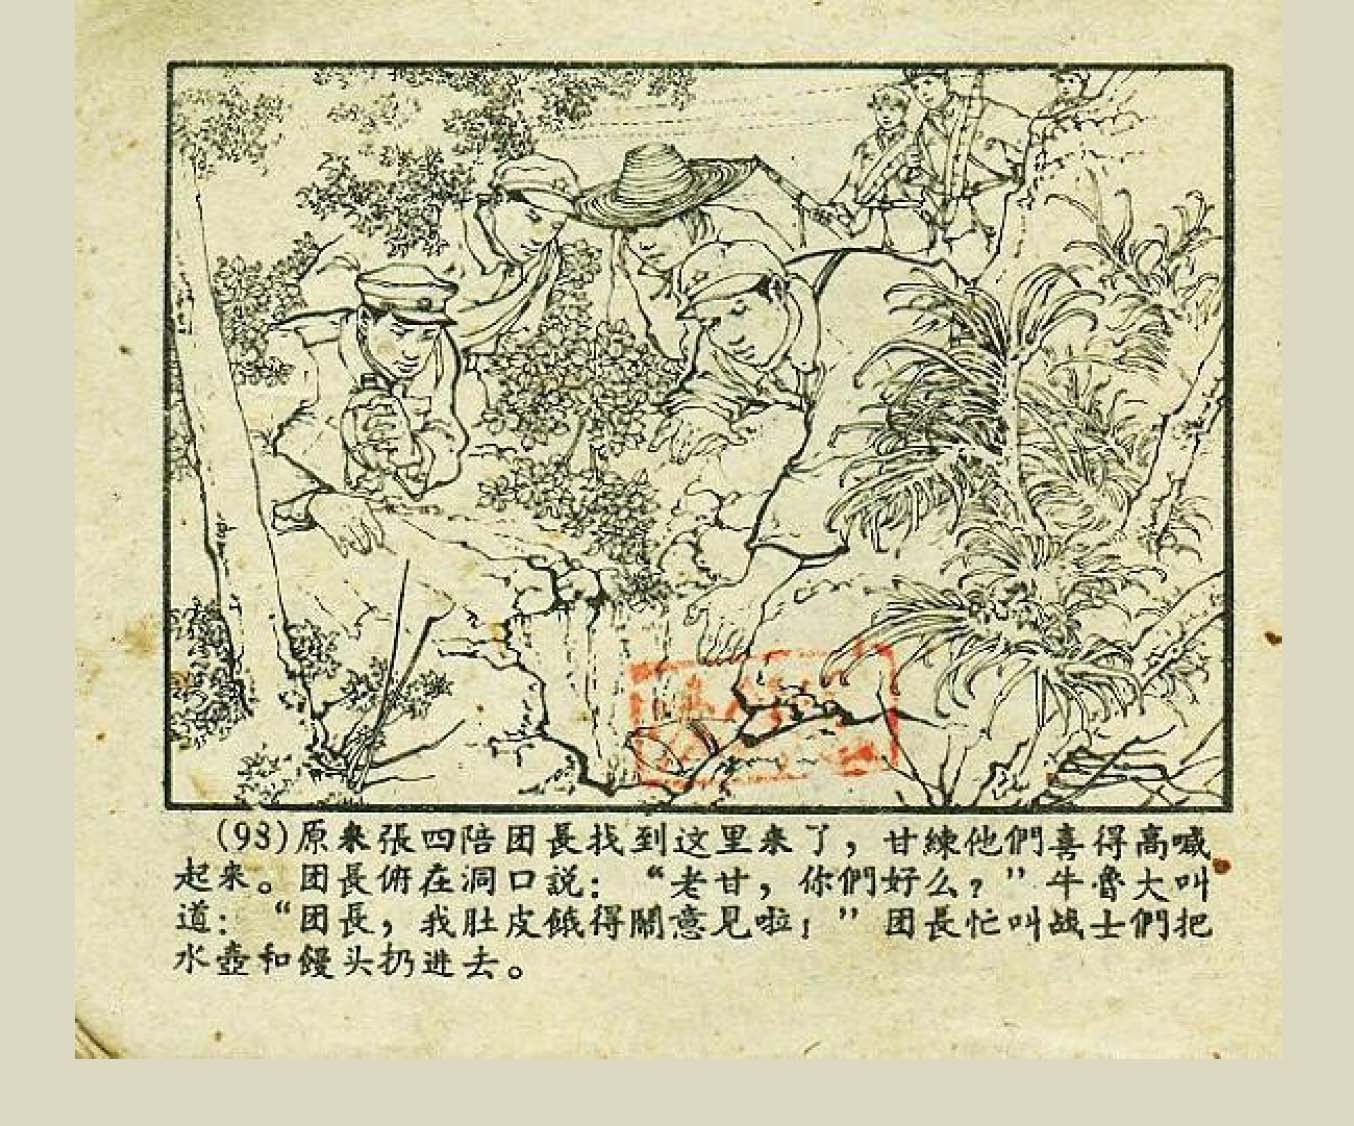 (93)原来張四陪团長找到这里来了，甘練他們喜得高喊
起来。团長俯在洞口説：“老甘，你們好么？”牛魯大叫
道：“团長，我肚皮餓得鬧意見啦！”团長忙叫战士們把
水壺和饅头扔进去。